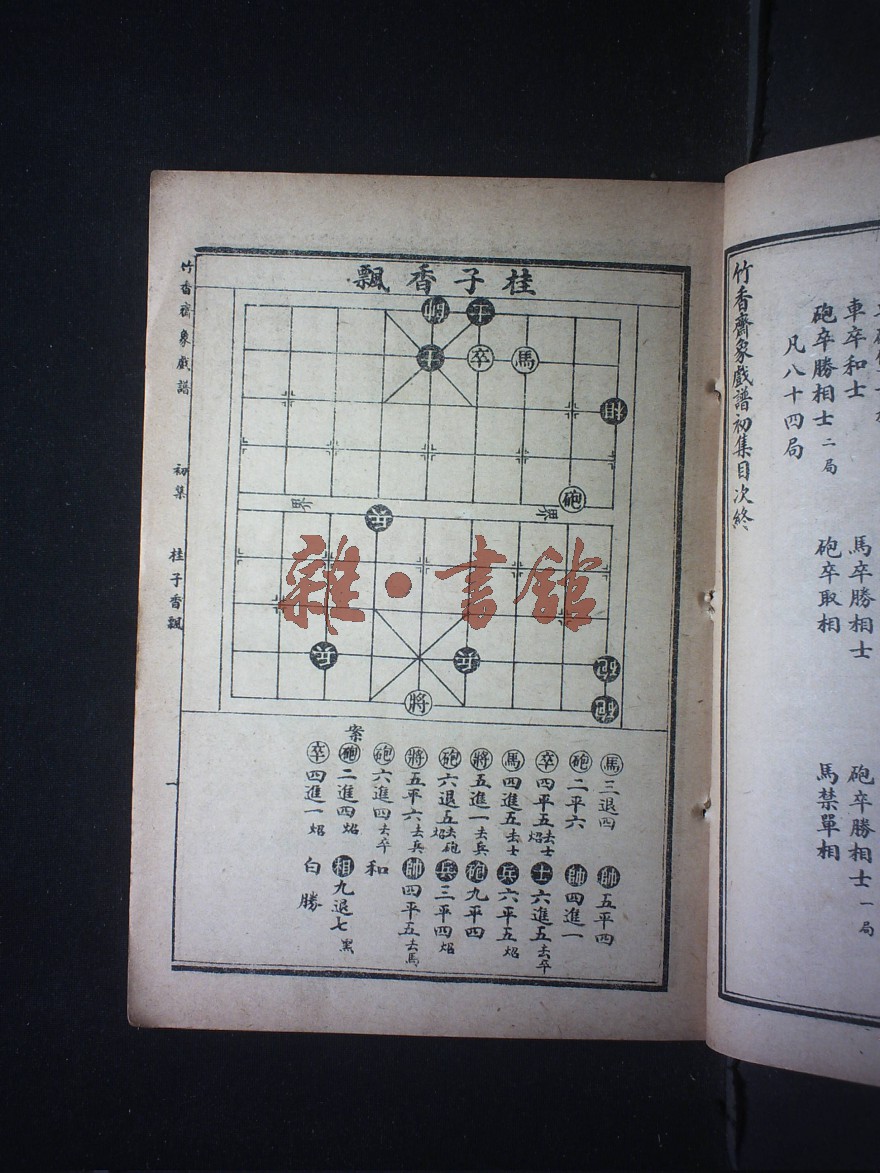 桂子香飄
竹香齋象戲譜
初集
桂子香飄
一
帥
士
士
卒
馬
相
砲
界
界
兵
兵
兵
砲
砲
將
馬三退四 帥五平四
砲二平六 帥四進一
卒四平五去士炤 士六進五去卒
馬四進五去士 兵六平五炤
將五進一去兵 砲九平四
砲六退五去砲炤 兵三平四炤
將五平六去兵 帥四平五去馬
砲六進四去卒 和
案
砲二進四炤 相九退七 黑
卒四進一炤 白勝
雜·書館
車卒和士
砲卒勝相士二局
凡八十四局
竹香齋象戲譜初集目次終
馬卒勝相士
砲卒取相
砲卒勝相士一局
馬禁單相